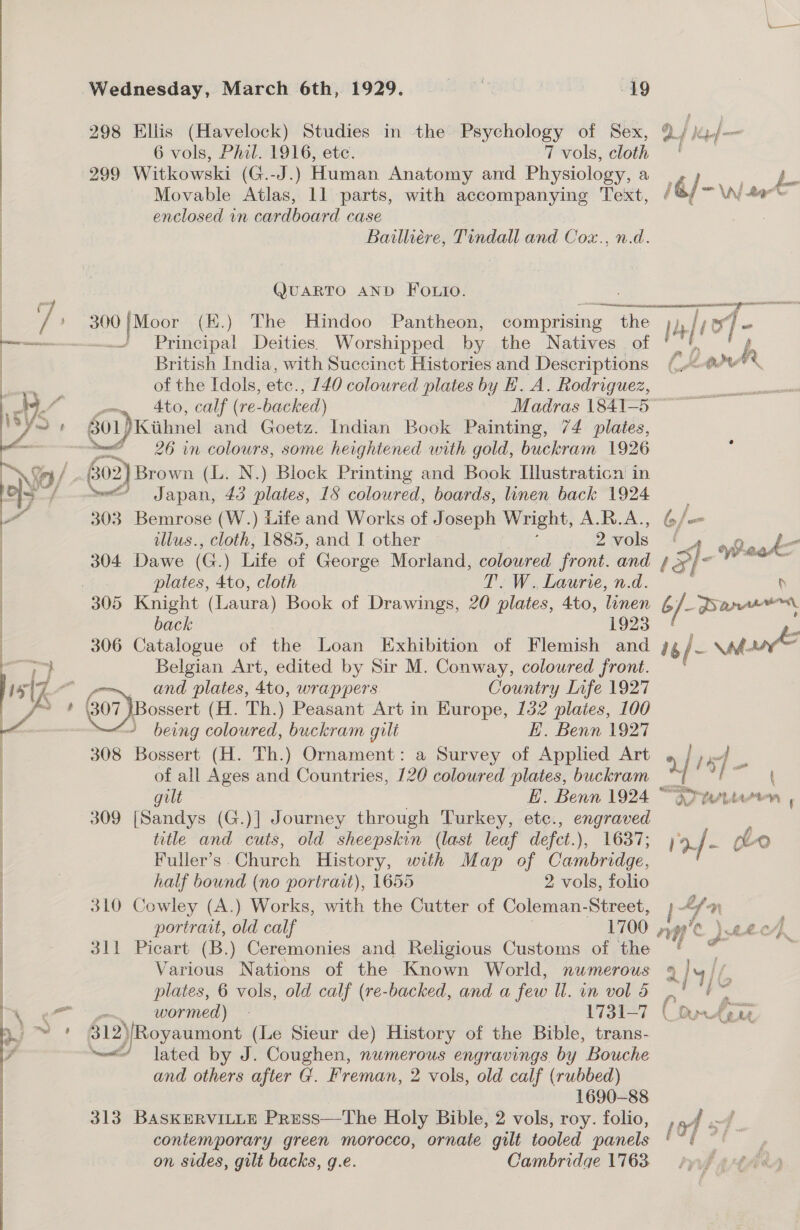 Wednesday, March 6th, 1929. 19
298 Ellis (Havelock) Studies in the Psychology of Sex,
6 vols, Phil. 1916, etc. 7 vols, cloth
299 Witkowski (G.-J.) Human Anatomy and Physiology, a
Movable Atlas, 11 parts, with accompanying Text,
enclosed in cardboard case
Baillière, Tindall and Cox., n.d.
QUARTO AND FOLIO.
300 Moor (E.) The Hindoo Pantheon, comprising the
Principal Deities Worshipped by the Natives of
British India, with Succinct Histories and Descriptions
of the Idols, etc., 140 coloured plates by E. A. Rodriguez,
4to, calf (re-backed) Madras 1841-5
301 Kühnel and Goetz. Indian Book Painting, 74 plates,
26 in colours, some heightened with gold, buckram 1926
302 Brown (L. N.) Block Printing and Book Illustration in
Japan, 43 plates, 18 coloured, boards, linen back 1924
303 Bemrose (W.) Life and Works of Joseph Wright, A.R.A.,
illus., cloth, 1885, and 1 other 2 vols
304 Dawe (G.) Life of George Morland, coloured front. and
plates, 4to, cloth T. W. Laurie, n.d.
305 Knight (Laura) Book of Drawings, 20 plates, 4to, linen
back 1923
306 Catalogue of the Loan Exhibition of Flemish and
Belgian Art, edited by Sir M. Conway, coloured front.
and plates, 4to, wrappers Country Life 1927
307 Bossert (H. Th.) Peasant Art in Europe, 132 plates, 100
being coloured, buckram gilt E. Benn 1927
308 Bossert (H. Th.) Ornament: a Survey of Applied Art
of all Ages and Countries, 120 coloured plates, buckram
gilt E. Benn 1924
309 [Sandys (G.)] Journey through Turkey, etc., engraved
title and cuts, old sheepskin (last leaf defct.), 1637;
Fuller's Church History, with Map of Cambridge,
half bound (no portrait), 1655 2 vols, folio
310 Cowley (A.) Works, with the Cutter of Coleman-Street,
portrait, old calf 1700
311 Picart (B.) Ceremonies and Religious Customs of the
Various Nations of the Known World, numerous
plates, 6 vols, old calf (re-backed, and a few ll. in vol 5
wormed) 1731-7
312 Royaumont (Le Sieur de) History of the Bible, trans-
lated by J. Coughen, numerous engravings by Bouche
and others after G. Freman, 2 vols, old calf (rubbed)
1690-88
313 BASKERVILLE PRESS—The Holy Bible, 2 vols, roy. folio,
contemporary green morocco, ornate gilt tooled panels
on sides, gilt backs, g.e. Cambridge 1763